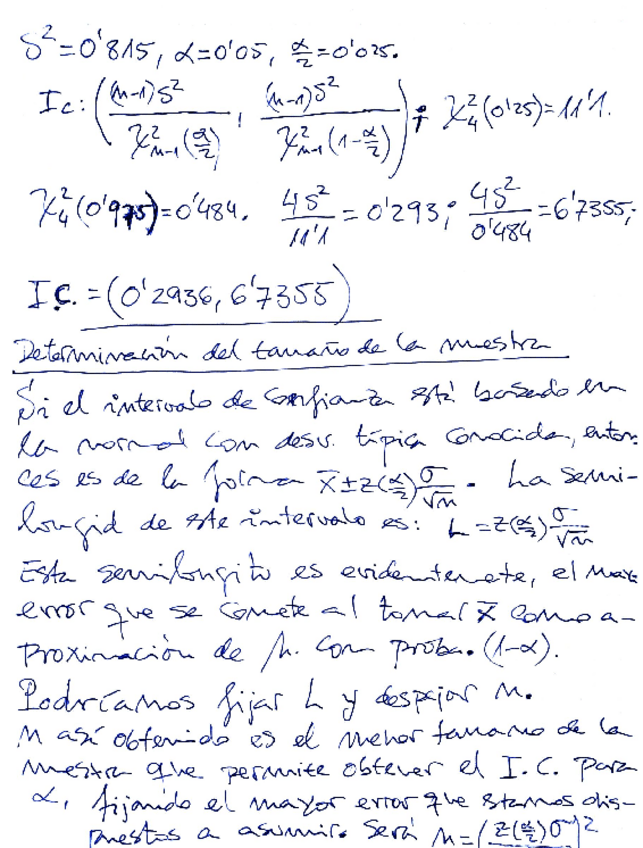 S² = 0'815, α = 0'05, α/2 = 0'025.
Ic: ( (n-1)S² / χ²ₙ₋₁(α/2) , (n-1)S² / χ²ₙ₋₁(1-α/2) ) ; χ²₄(0'25) = 11'1.
χ²₄(0'975) = 0'484. 4S²/11'1 = 0'293; 4S²/0'484 = 6'7355;
I.C. = (0'2936, 6'7355)
Determinación del tamaño de la muestra
Si el intervalo de confianza está basado en
la normal con desv. típica conocida, enton-
ces es de la forma x̄ ± z(α/2) σ/√n. La semi-
longid de este intervalo es: L = z(α/2) σ/√n
Esta semilongitu es evidentemete, el max
error que se comete al tomar x̄ como a-
proximación de μ. con proba. (1-α).
Podríamos fijar L y despejar n.
n así obtenido es el menor tamano de la
muestra que permite obtener el I.C. para
α, fijando el mayor error que estamos dis-
puestos a asumir. Será n = ( z(α/2) σ )²